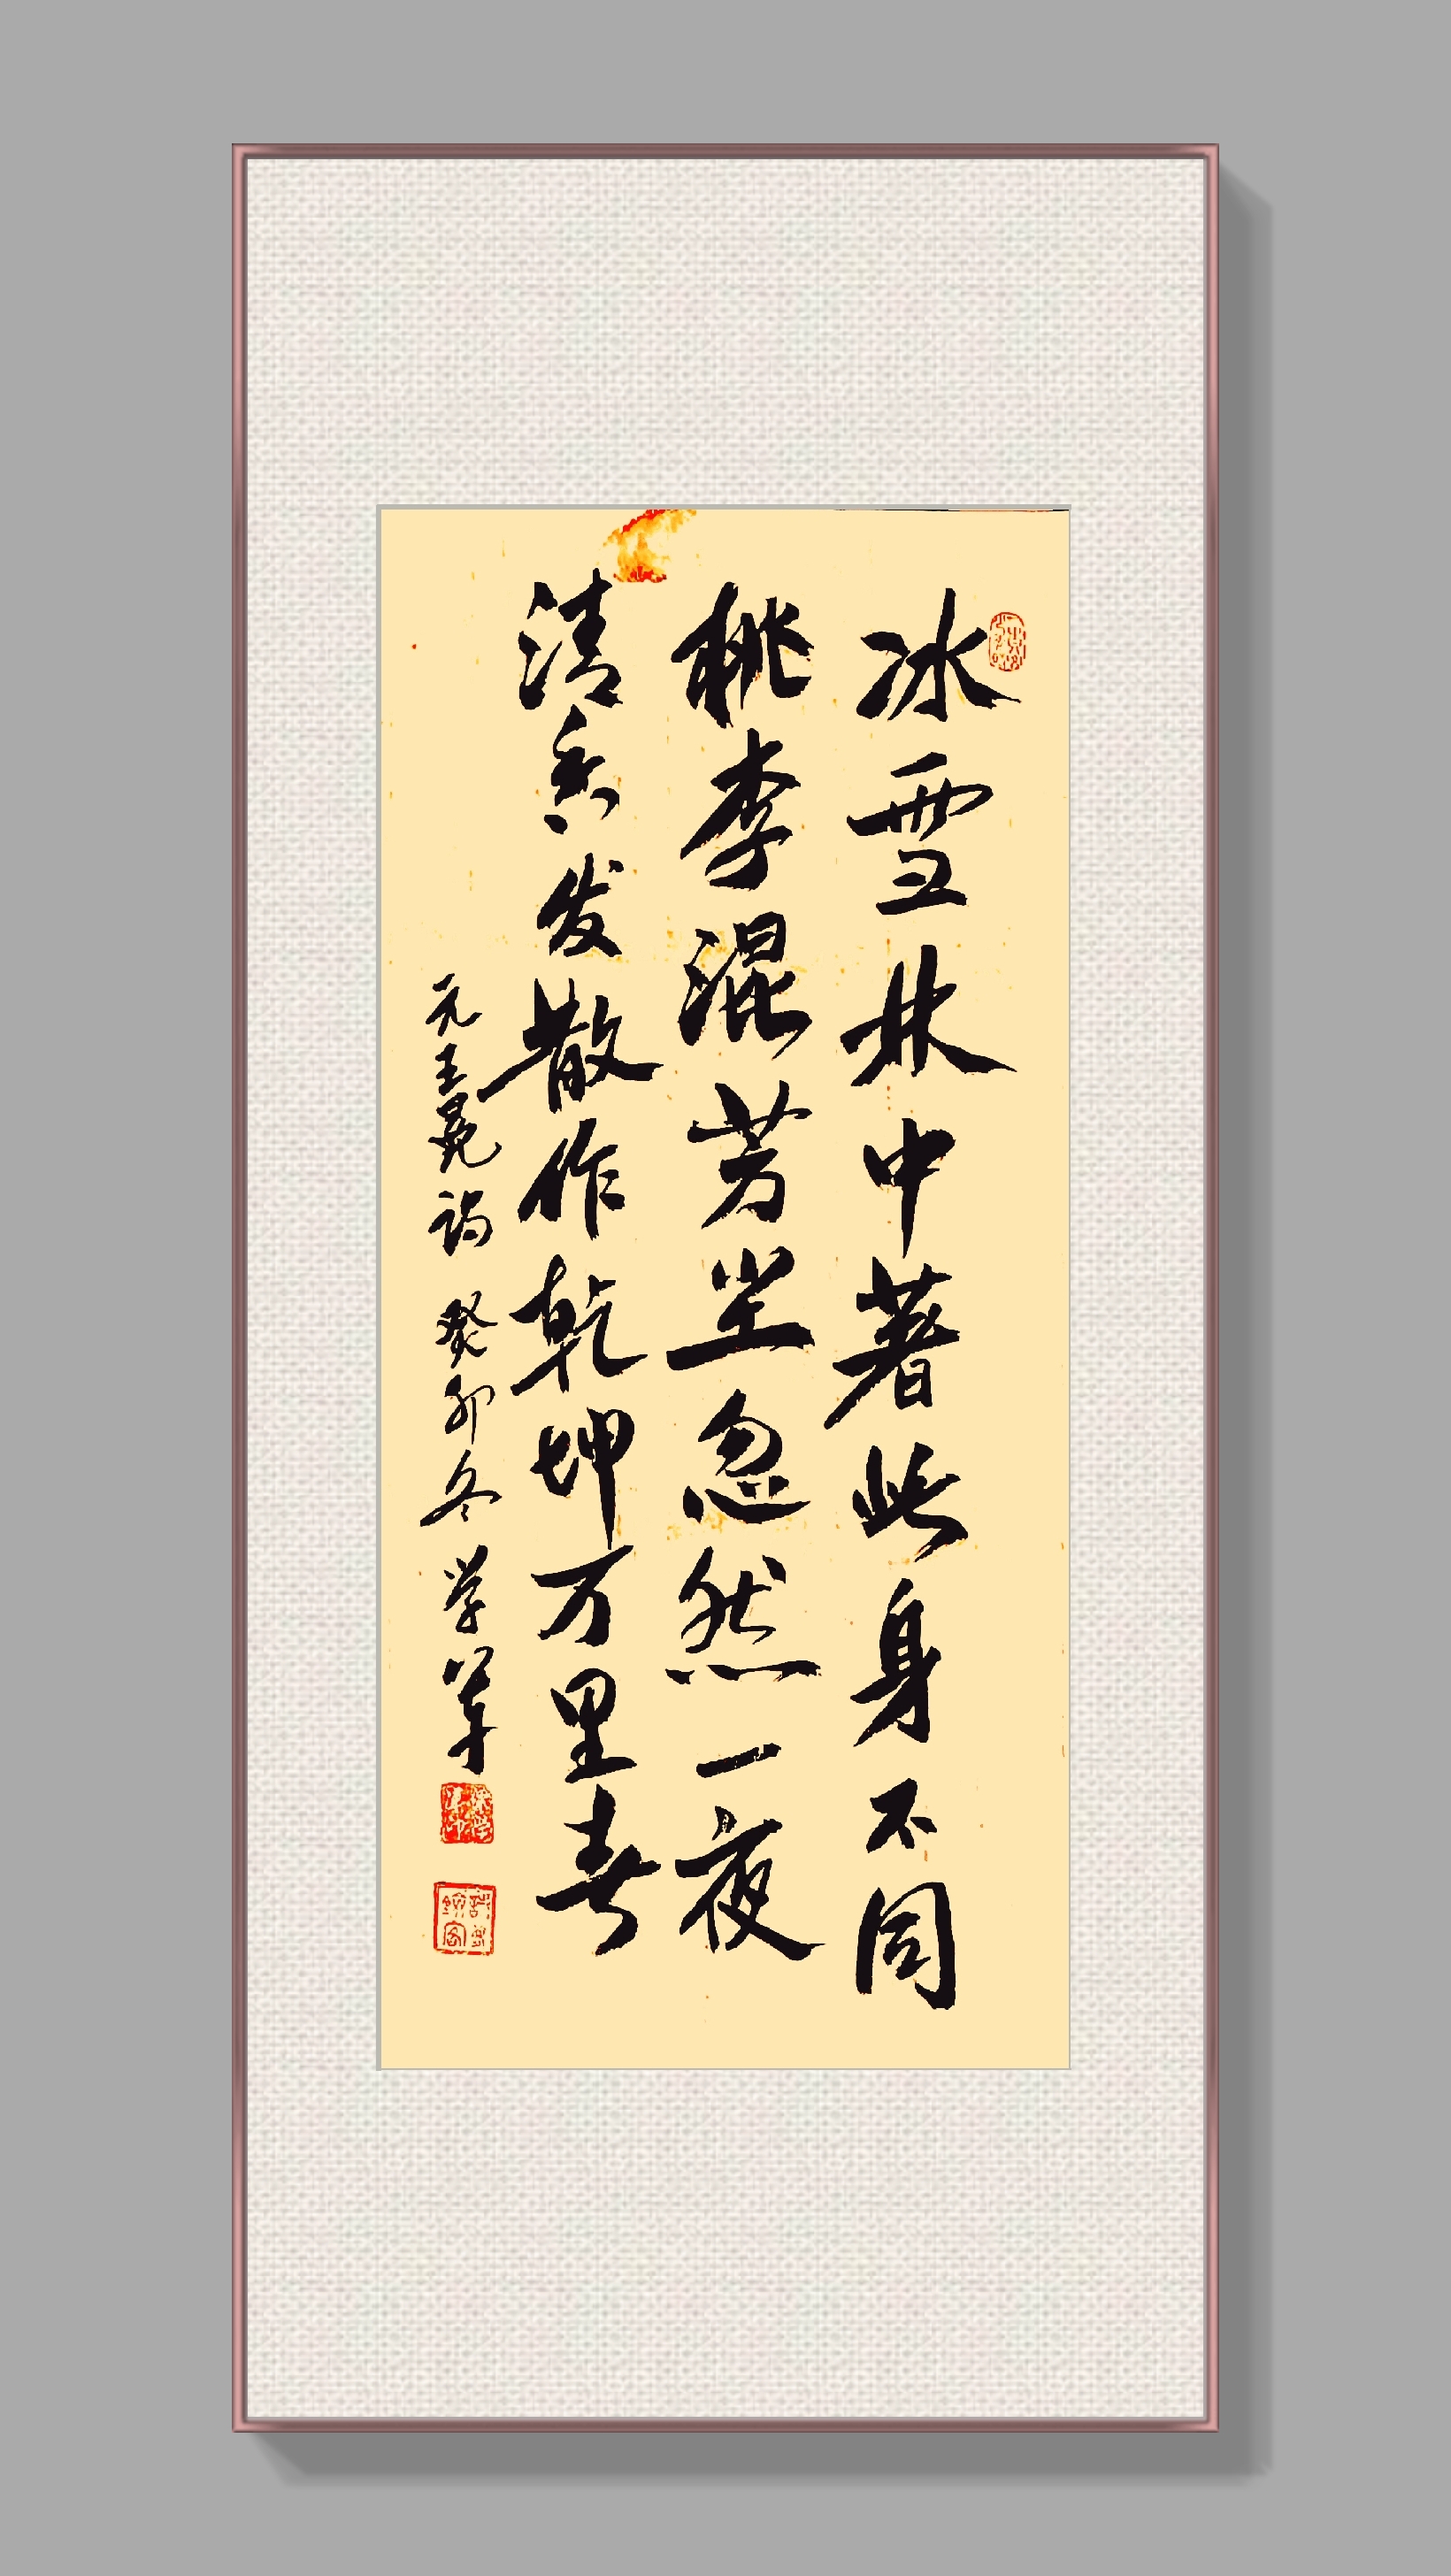 冰雪林中著此身不同
桃李混芳尘忽然一夜
清香发散作乾坤万里春
元王冕诗 癸卯冬 学军